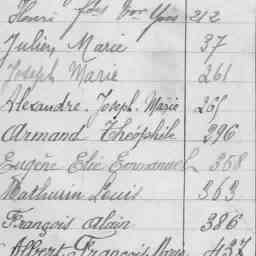 Henri fois Yves 212
Julien Marie 37
Joseph Marie 261
Alexandre. Joseph. Marie 265
Armand Théophile 296
Eugène Elie Emmanuel 358
Mathurin Louis 363
François Alain 386
Albert François 437